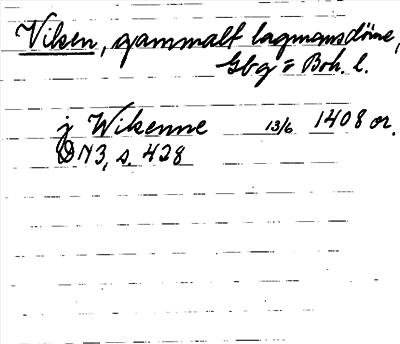 Viken, gammalt lagmansdöme,
Gbg o Boh. l.
j Wikenne 13/6 1408 or.
DN3, s. 428